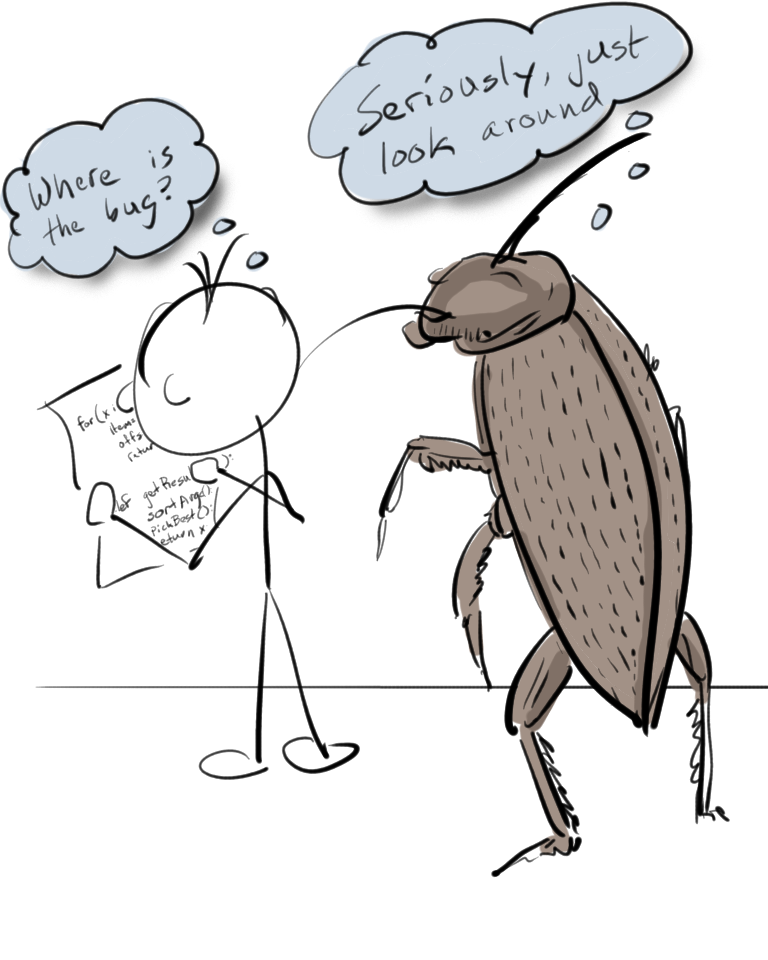 Where is
the bug?
Seriously, just
look around
for(x
items
offs
retur
def getResu ):
sortArgs():
pickBest():
return x